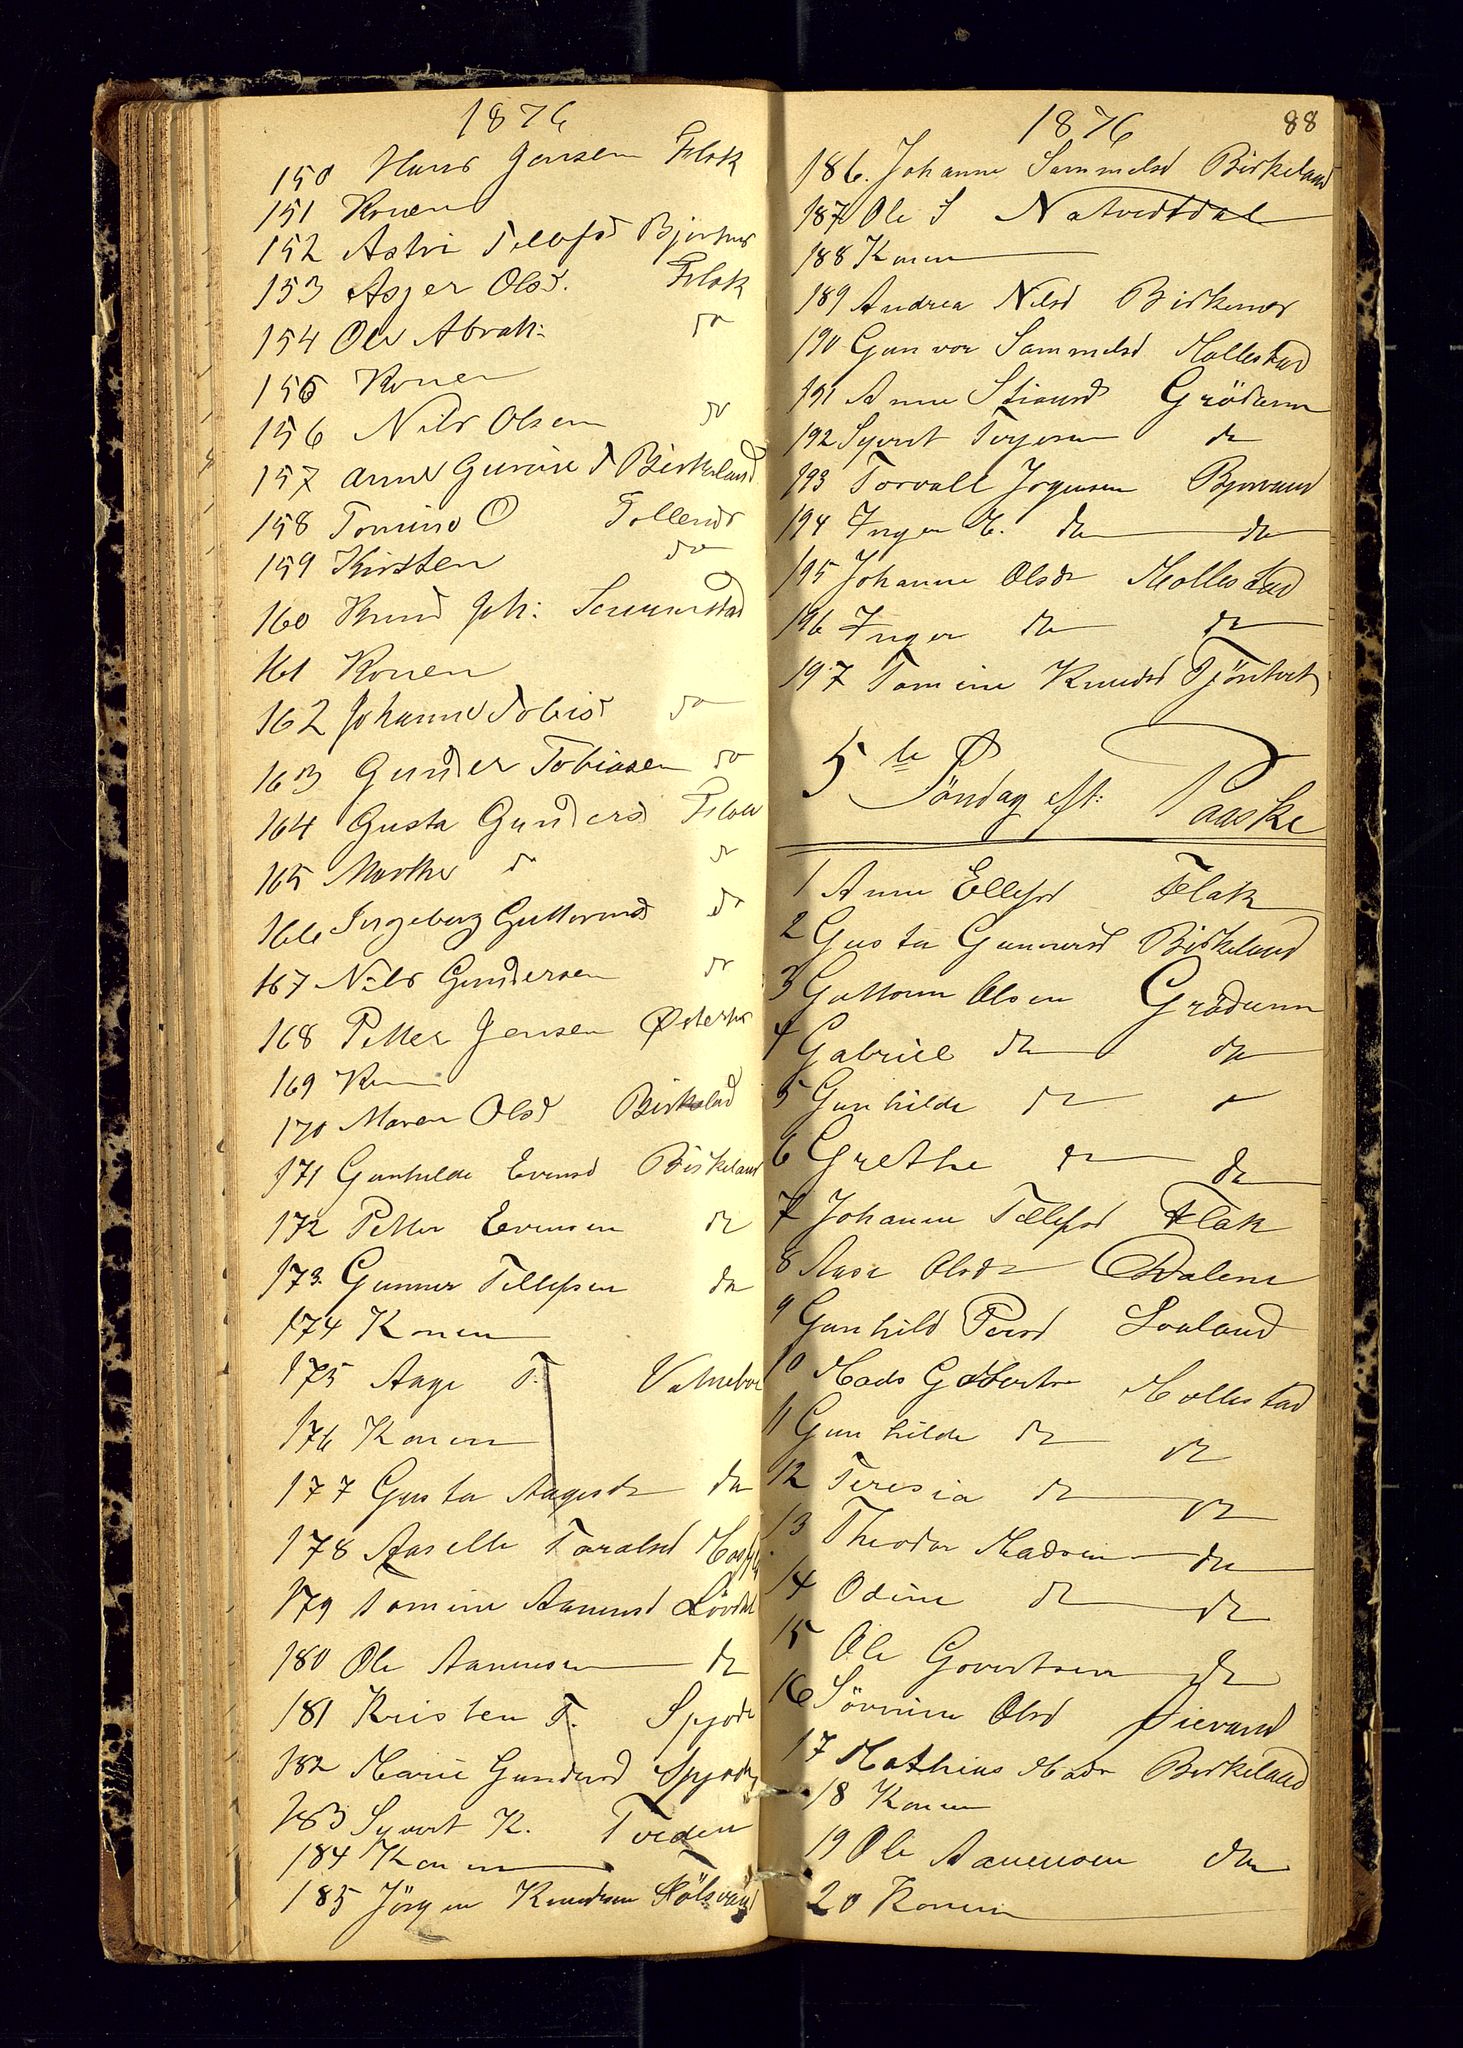 1876
150 Hans Jensen Flak
151 Konen
152 Astri Tellefsd
153 Asjer Olsd. Flak
154 Ole Abrah: do
155 Konen
156 Nils Olsen do
157 Anne Birkeland
158 Tomine O Tollends
159 Kirsten do
160 Knud Joh:
161 Konen
162 Johanne Tobisd do
163 Gunder Tobiasen do
164 Gusta Gundersd Flak
165 Marthe do do
166 Ingeborg Guttormsd do
167 Nils Gundersen do
168 Petter Jensen
169 Konen
170 Maren Olsd
171 Gunhilde Evensd Birkeland
172 Petter Evensen do
173 Gunner Tellefsen do
174 Konen
175 Aage T.
176 Konen
177 Gusta Aagesdr do
178 Aaselle Taralsd
179 Tomine Aanensd
180 Ole Aanensen do
181 Kristen T.
182 Marie Gundersd
183 Syvert K. Tveden
184 Konen
185 Jörgen Knudsen
1876 88
186. Johanne Sammelsd Birkeland
187 Ole S Natvedtdal
188 Konen
189 Andrea Nilsd Birkenes
190 Gunvor Sammelsd Mollestad
191 Anne Stiansd Grödum
192 Syvert Terjesen do
193 Torvall Jörgensen
194 Inger E. do do
195 Johanne Olsdr Mollestad
196 Inger do do
197 Tomine Knudsd
5te Söndag eft: Paaske
1 Anne Ellefsd Flak
2 Gusta Gunnersd Birkeland
3 Guttorm Olsen Grödum
4 Gabriel do do
5 Gunhilde do do
6 Grethe do do
7 Johanne Tellefsd Flak
8 Aase Olsdr Dalene
9 Gunhild Persd
10 Mads Mollestad
11 Gunhilde do do
12 Teresia do do
13 Theodor Madsen do
14 Odine do do
15 Ole Govertsen do
16 Sövrine Olsd
17 Mathias Mads Birkeland
18 Konen
19 Ole Aanensen do
20 Konen